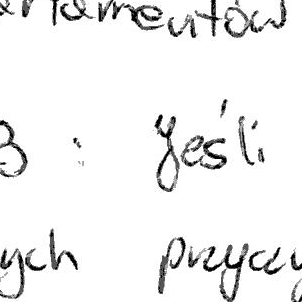 artamentów
3 : Jeśli
ych przyczy